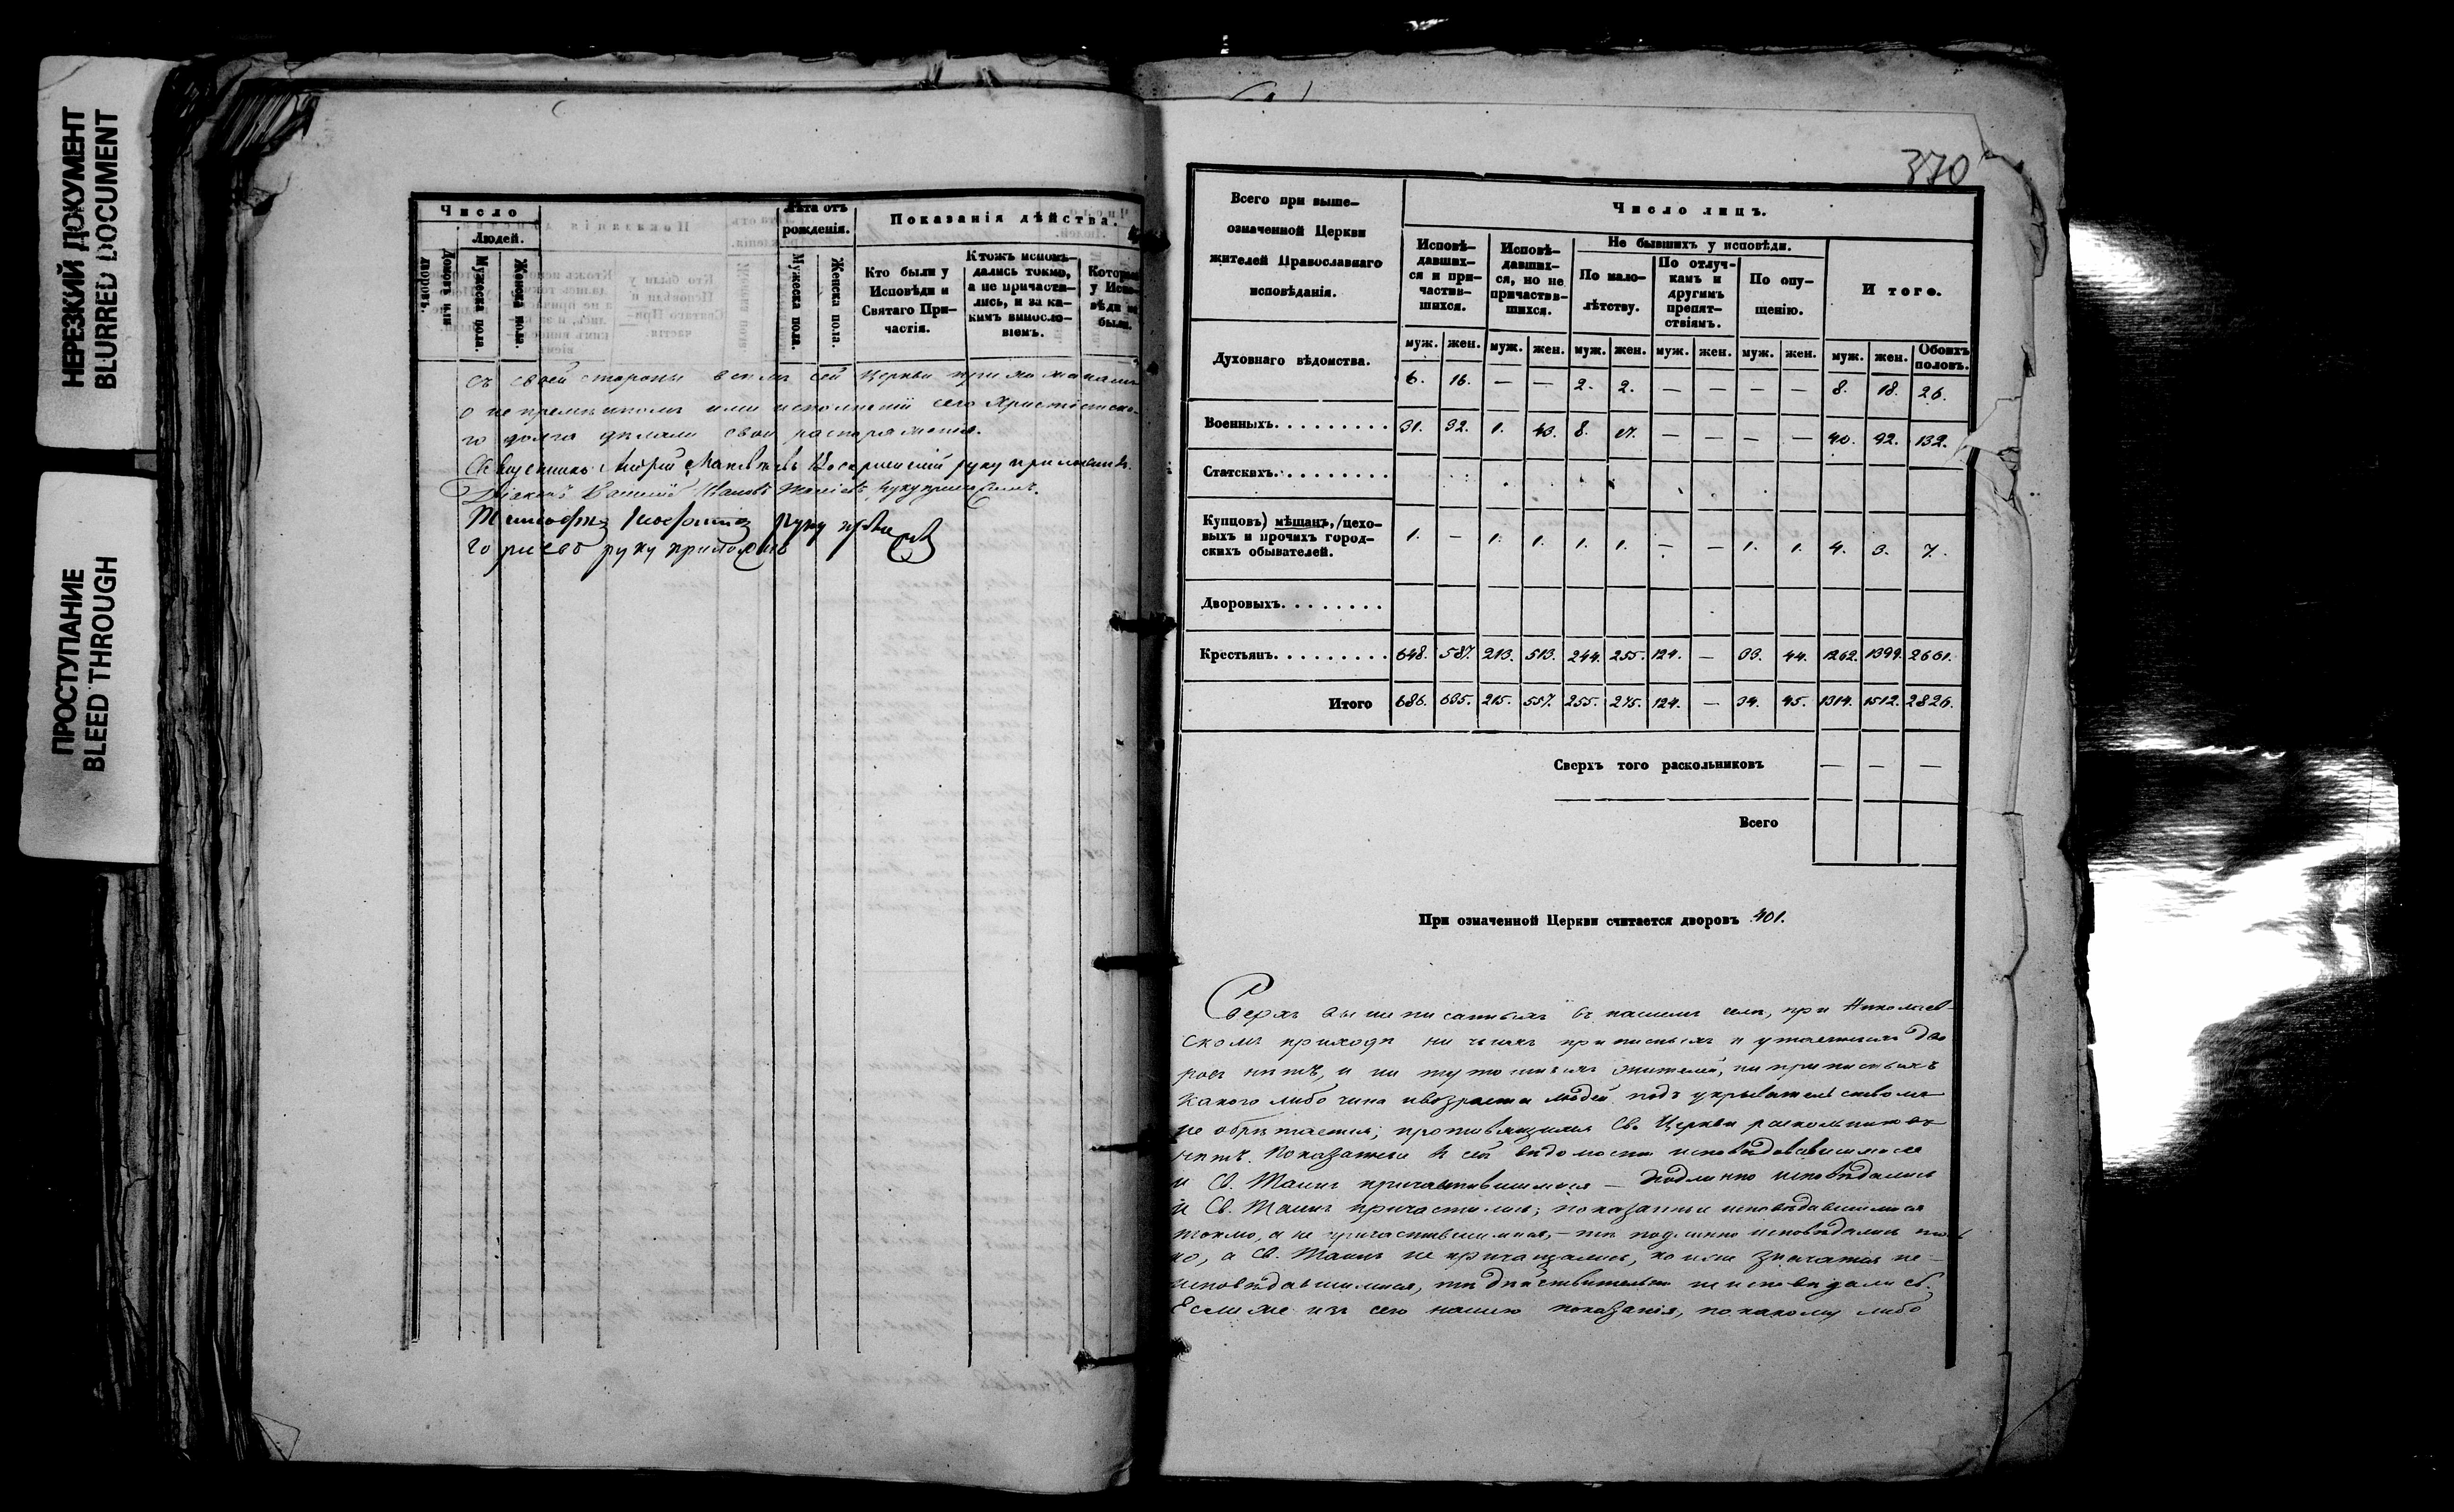 НЕРЕЗКИЙ ДОКУМЕНТ
BLURRED DOCUMENT
ПРОСТУПАНИЕ
BLEED THROUGH
Число
Людей.
Домовъ или дворовъ.
Мужеска пола.
Женска пола.
Лѣта отъ рожденія.
Мужеска пола.
Женска пола.
Показанія дѣйства.
Кто были у Исповѣди и Святаго Причастія.
Ктожъ исповѣ-
дались токмо,
а не причасти-
лись, и за ка-
кимъ виносло-
віемъ.
съ своей стороны всѣмъ сей Церкви прихожанамъ
о непремѣнномъ ими исполненіи сего Христіанска-
го долга дѣлали свои распоряженія.
руку приложилъ.
Діаконъ Василій Ивановъ руку приложилъ.
руку приложилъ
руку приложилъ
370
Всего при выше-
означенной Церкви
жителей Православнаго
исповѣданія.
Число лицъ.
Исповѣ-
давших-
ся и при-
частив-
шихся.
Исповѣ-
давших-
ся, но не
причастив-
шихся.
Не бывшихъ у исповѣди.
По мало-
лѣтству.
По отлуч-
камъ и
другимъ
препят-
ствіямъ.
По опу-
щенію.
И того.
муж. жен. муж. жен. муж. жен. муж. жен. муж. жен. муж. жен. Обоихъ половъ.
Духовнаго вѣдомства. 6. 16. — — 2. 2. — — — — 8. 18. 26.
Военныхъ. 31. 32. 1. 43. 8. 17. — — — — 40. 92. 132.
Статскихъ.
Купцовъ) мѣщанъ, (цехо-
выхъ и прочихъ город-
скихъ обывателей. 1. — 1. 1. 1. 1. — — 1. 1. 4. 3. 7.
Дворовыхъ.
Крестьянъ. 648. 587. 213. 513. 244. 255. 124. — 33. 44. 1262. 1399. 2661.
Итого 686. 635. 215. 557. 255. 275. 124. — 34. 45. 1314. 1512. 2826.
Сверхъ того раскольниковъ — — —
Всего
При означенной Церкви считается дворовъ 401.
Сверхъ вышеписанныхъ въ нашемъ селѣ, при Николаев-
скомъ приходѣ ни чьихъ приписныхъ и утаенныхъ дво
ровъ нѣтъ, и ни тутошнихъ жителей, ни приписныхъ
какого либо чина и возраста людей подъ укрывательствомъ
не обрѣтается; противящихся Св. Церкви раскольниковъ
нѣтъ. Показанные въ сей вѣдомости исповѣдовавшимися
и Св. Таинъ причастившимися — подлинно исповѣдались
и Св. Таинъ причастились; показанные исповѣдавшимися
токмо, а не причастившимися, — тѣ подлинно исповѣдались ток
мо, а Св. Таинъ не причащались, кои значатся не-
исповѣдавшимися, тѣ дѣйствительно не исповѣдались.
Если же изъ сего нашего показанія, по какому либо